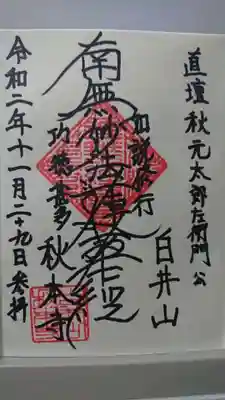 直壇 秋元太郎左衛門 公
白井山
如説修行
南無妙法蓮華経
功徳甚多
秋本寺
令和二年十一月二十九日参拝